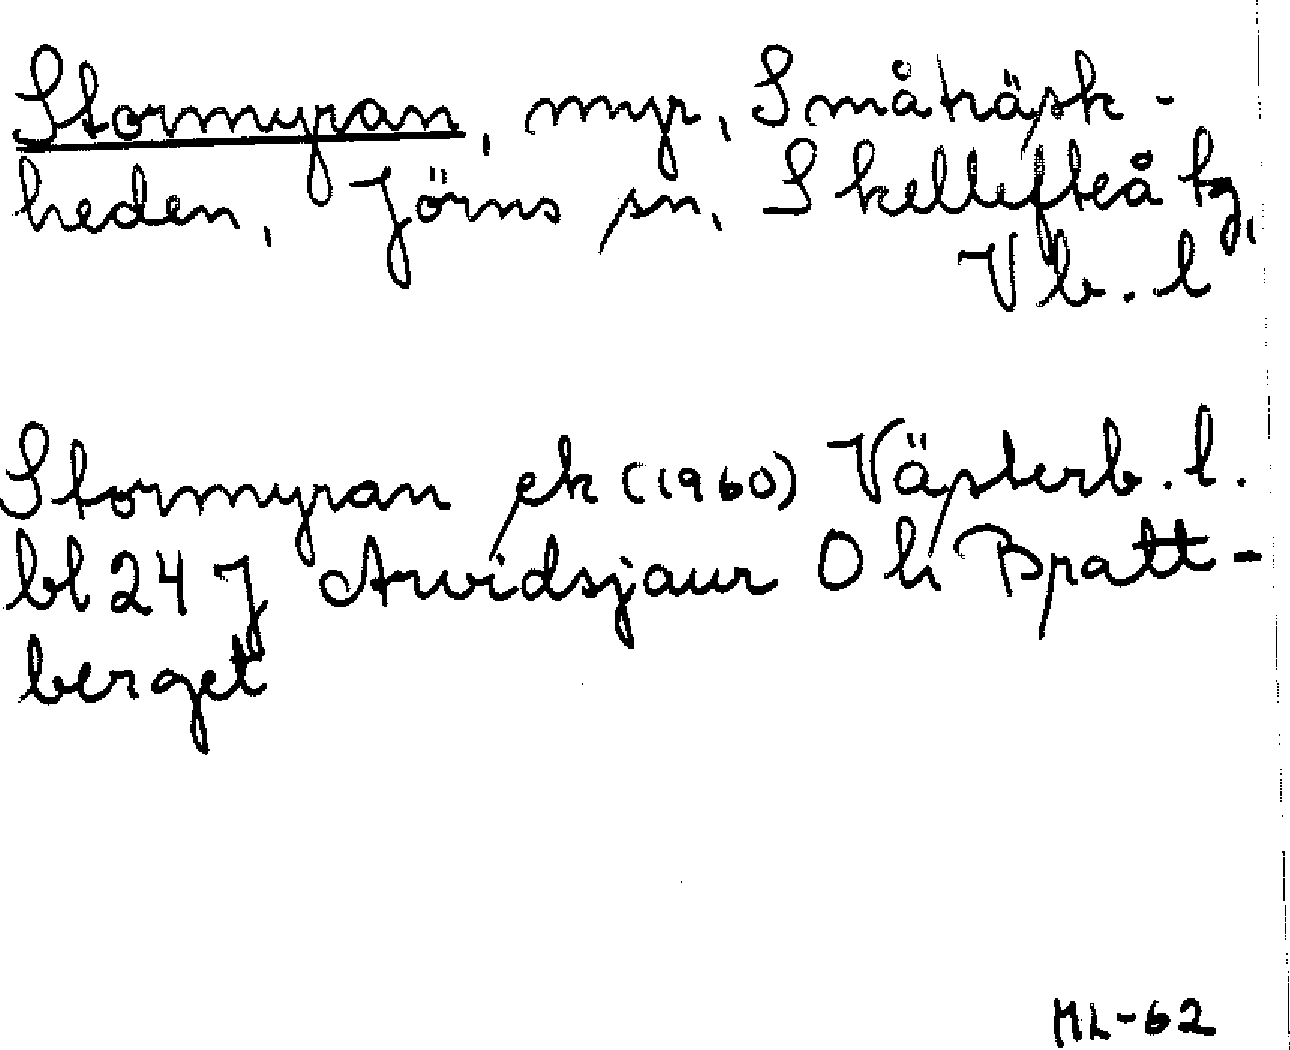 Stormyran, myr, Småträsk-
heden, Jörns sn, Skellefteå tg,
Vb. l
Stormyran ek (1960) Västerb. l.
bl 24 J Arvidsjaur Ö h Bratt-
berget
ML-62